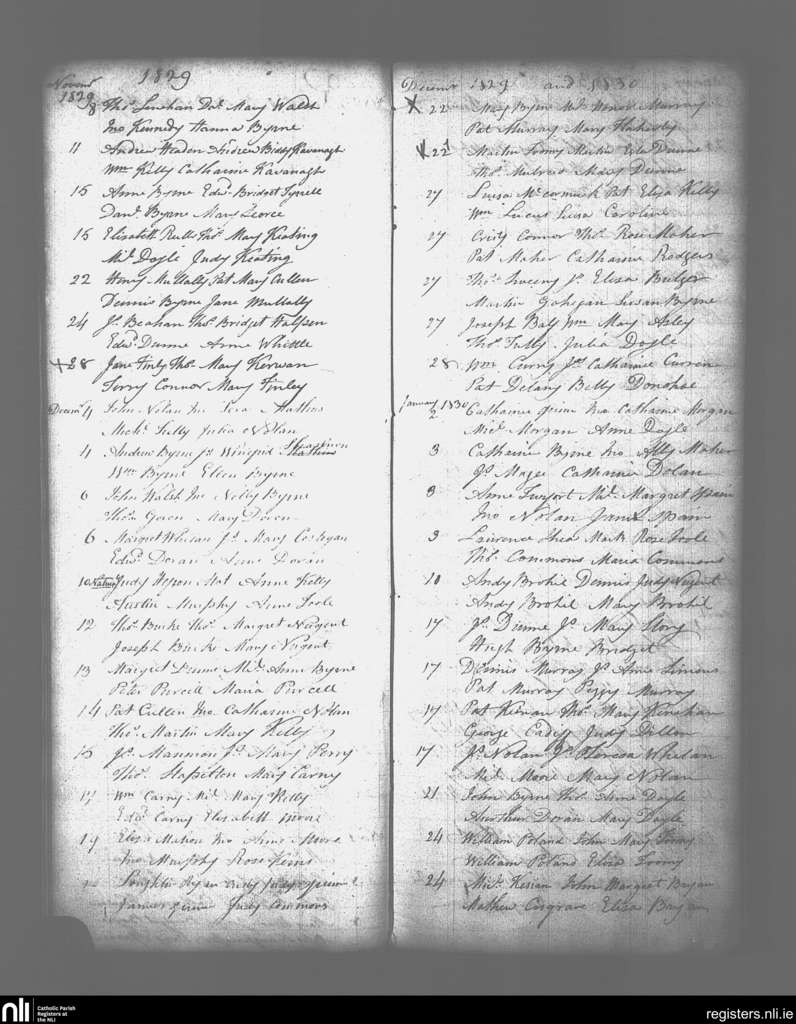 Novemr 1829
1829
8 Thos Linehan Danl Mary Walsh
Jno Kennedy Hanna Byrne
11 Andrew Headon Andrew Biddy Kavanagh
Wm Kelly Catharine Kavanagh
15 Anne Byrne Edwd Bridget Tyrell
Danl Byrne Mary
15 Elisabeth Thos Mary Keating
Ml Doyle Judy Keating
22 Henry Mullally Pat Mary Cullen
Dennis Byrne Jane Mullally
24 Js Beahan Thos Bridget Halpen
Edwd Dunne Anne Whittle
x 28 Jane Finly Thos Mary Kerwan
Terry Connor Mary Finley
Decemr 4 John Nolan Jno
Michl Kelly Julia Nolan
4 Andrew Byrne Js Winefrid
Wm Byrne Ellen Byrne
6 John Walsh Jno Nelly Byrne
Thos Mary Doren
6 Margret Whelan Js Mary Costigan
Edwd Doran Anne Doran
10 Judy Mat Anne Kelly
Austin Murphy Anne Toole
12 Thos Burke Thos Margret Nugent
Joseph Burke Mary Nugent
13 Margret Dunne Ml Anne Byrne
Peter Purcell Maria Purcell
14 Pat Cullen Jno Catharine Nolan
Thos Martin Mary Kelly
15 Js Mannion Js Mary Perry
Thos Stapelton Mary Carny
17 Wm Carny Ml Mary Kelly
Edwd Carny Elisabeth Moore
19 Eliza Mahon Jno Anne Moore
Jno Murphy Rose
Ryan Judy
James Judy Commons
Decemr 1829 and 1830
x 22 Mary Byrne Ml Honor Murray
Pat Murray Mary Flaherty
x 22d Martin Toomy Martin Eliza Dunne
Thos Mary Dunne
27 Luisa McCormick Pat Eliza Kelly
Wm Lucas Luisa Caroline
27 Cristy Connor Thos Rose Maher
Pat Maher Catharine Rodgers
27 Thos Sweeny Js Eliza Bulger
Martin Gahegan Susan Byrne
27 Joseph Balf Wm Mary Arley
Thos Tully Julia Doyle
28 Wm Curry Jas Catharine Curren
Pat Delany Betty Donohoe
January 1830
2 Catharine Jno Catharine Morgan
Michl Morgan Anne Doyle
3 Catharine Byrne Jno Ally Maher
Js Magee Catharine Dolan
3 Anne Ml Margret Spain
Jno Nolan James Spain
9 Laurence Shea Mark Rose Toole
Thos Commons Maria Commons
10 Andy Brohil Dennis Judy Nugent
Andy Brohil Mary Brohil
17 Js Dunne Js Mary Story
Hugh Byrne Bridget
17 Dennis Murray Js Anne Simons
Pat Murray Peggy Murray
17 Pat Kernan Thos Mary
George Cadey Judy Dillon
17 Js Nolan Js Theresa Whelan
Ml Moore Mary Nolan
21 John Byrne Thos Anne Doyle
Doran Mary Doyle
24 William Poland John Mary Toomy
William Poland Eliza Toomy
24 Michl Kernan John Margret Bryan
Mathew Cosgrave Eliza Bryan
nli
Catholic Parish
Registers at
the NLI
registers.nli.ie